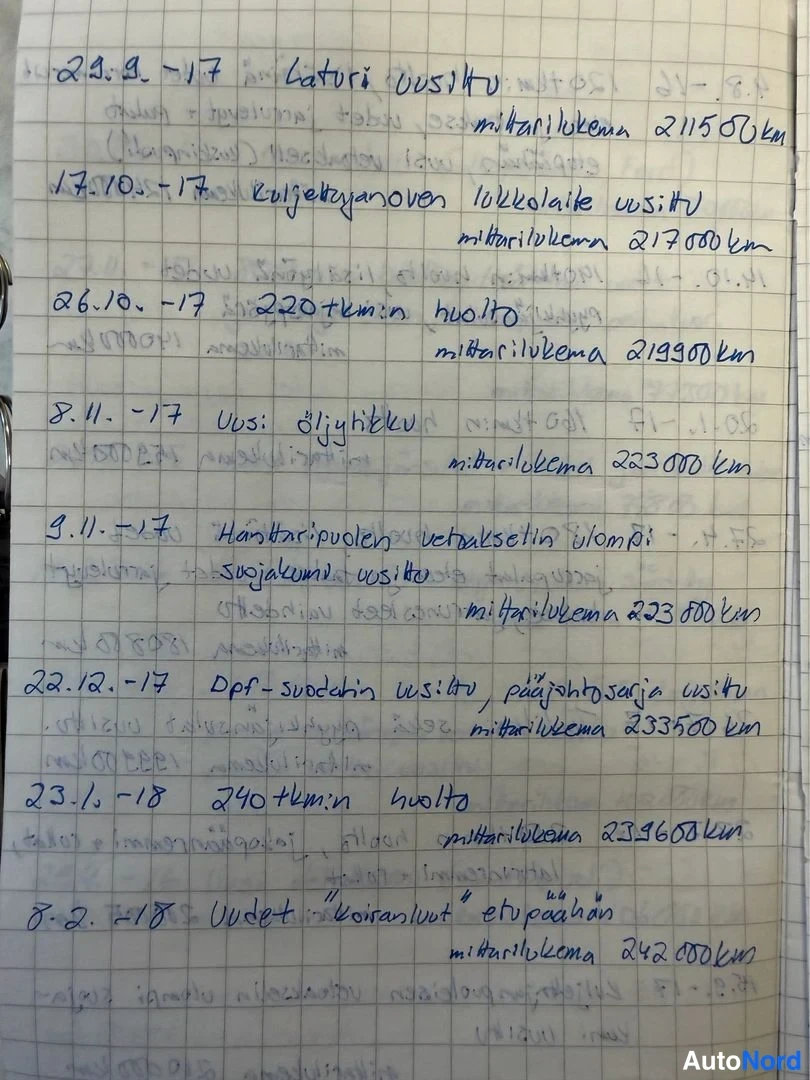 29.9.-17 Laturi uusittu
mittarilukema 211500km
17.10.-17 Kuljettajanoven lukkolaite uusittu
mittarilukema 217000km
26.10.-17 220tkm:n huolto
mittarilukema 219900km
8.11.-17 Uusi öljytikku
mittarilukema 223000km
9.11.-17 Hänttäripuolen vetoakselin ulompi
suojakumi uusittu
mittarilukema 223000km
22.12.-17 Dpf-suodatin uusittu, pääjohtosarja uusittu
mittarilukema 233500km
23.1.-18 240tkm:n huolto
mittarilukema 239600km
8.2.-18 Uudet "koiranluut" etupäähän
mittarilukema 242000km
AutoNord